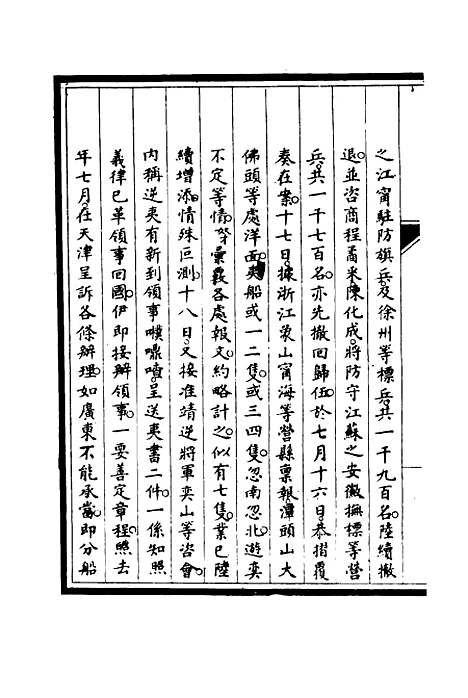 之江甯駐防旗兵及徐州等標兵共一千九百名陸續撤
退並咨商程矞采陳化成將防守江蘇之安徽撫標等營
兵共一千七百名亦先撤回歸伍於七月十六日恭摺覆
奏在案十七日據浙江象山甯海等營縣稟報潭頭山大
佛頭等處洋面夷船或一二隻或三四隻忽南忽北遊奕
不定等情彙覈各處報文約略計之似有七隻業已陸
續增添情殊叵測十八日又接准靖逆將軍奕山等咨會
內稱逆夷有新到領事噗𪡏喳呈送夷書二件一係知照
義律已革領事回國伊即接辦領事一要善定章程照去
年七月在天津呈訴各條辦理如廣東不能承當即分船